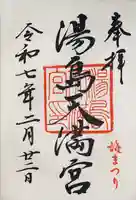 奉拝
湯島天満宮
梅まつり
令和七年二月廿二日